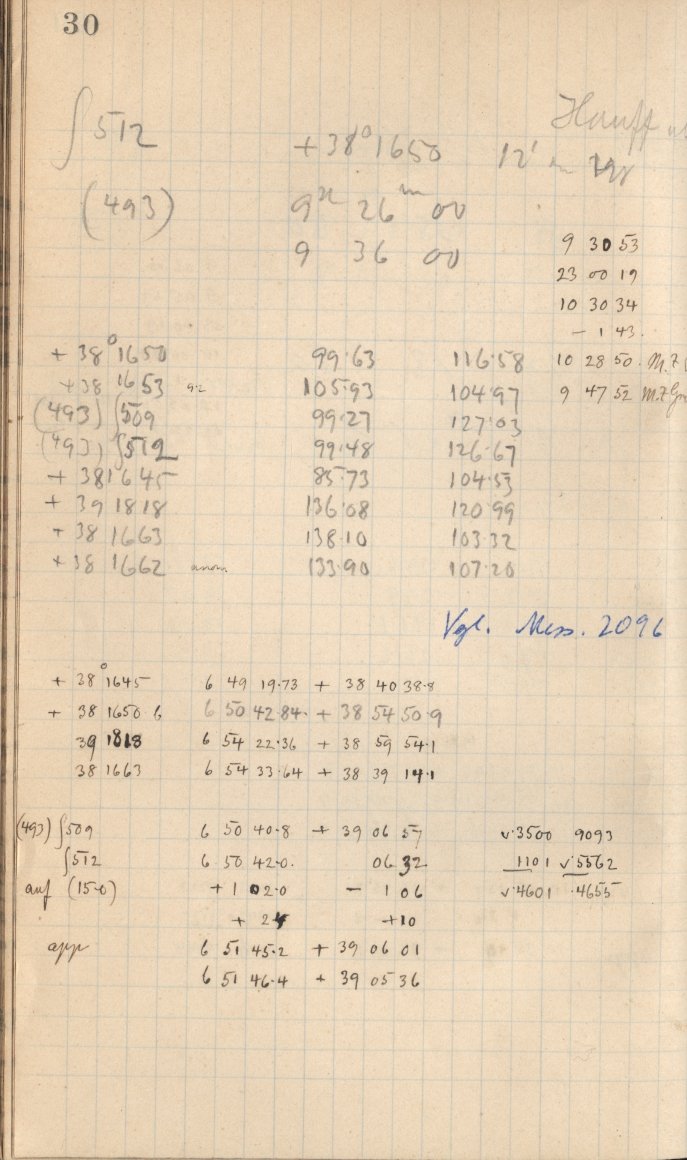 30
Hauff
∫512 +38°1650 12' in
(493) 9h 26m 00
9 36 00
9 30 53
23 00 19
10 30 34
- 1 43.
+ 38°1650 99.63 116.58 10 28 50. M.Z
+38 1653 9.2 105.93 104.97 9 47 52 M.Z Gr
(493) ∫509 99.27 127.03
(493) ∫512 99.48 126.67
+ 38 1645 85.73 104.53
+ 39 1818 136.08 120.99
+ 38 1663 138.10 103.32
+ 38 1662 anon 133.90 107.20
Vgl. Mess. 2096
+ 38°1645 6 49 19.73 + 38 40 38.8
+ 38 1650 6 6 50 42.84. + 38 54 50.9
39 1818 6 54 22.36 + 38 59 54.1
38 1663 6 54 33.64 + 38 39 14.1
(493) ∫509 6 50 40.8 + 39 06 57 v.3500 9093
∫512 6 50 42.0. 06 32 1101 v.5562
auf (15.0) +1 02.0 - 1 06 v.4601 .4655
+ 2.4 +10
app 6 51 45.2 + 39 06 01
6 51 46.4 + 39 05 36